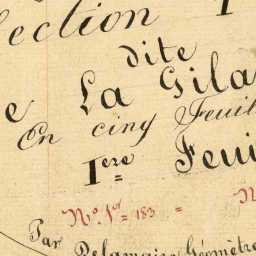 ection
dite
e La Gila
En cinq Feuil
1ere Feui
No. 1er = 183 =
Par Delamaire Géomètre